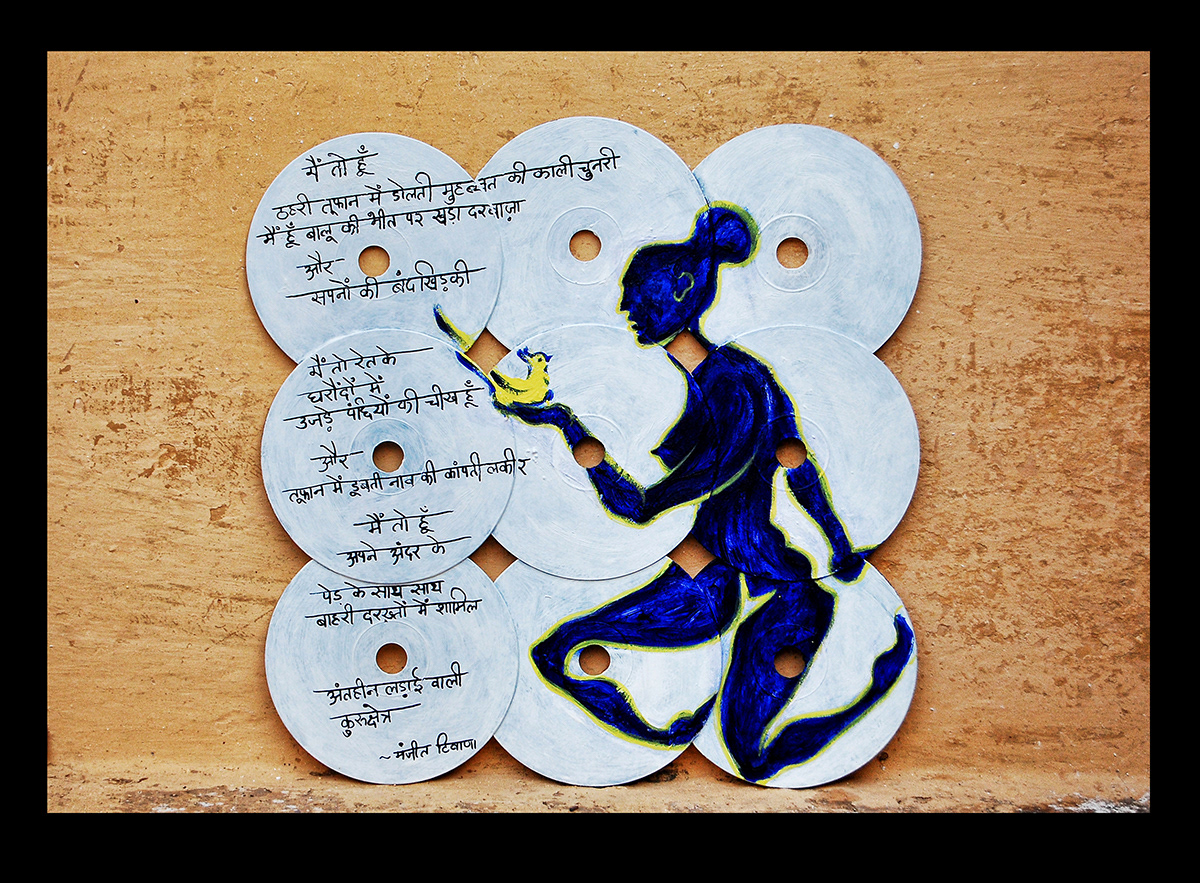 मैं तो हूँ
ठहरी तूफान में डोलती मुहब्बत की काली चुनरी
मैं हूँ बालू की भीत पर खुडा दरवाज़ा
और
सपनों की बंद खिड़की
मैं तो रेत के
घरौंदों में
उजड़े पंछियों की चीख हूँ
और
तूफान में डूबती नाव की कांपती लकीर
मैं तो हूँ
अपने अंदर के
पेड के साथ साथ
बाहरी दरख़्तों में शामिल
अंतहीन लड़ाई वाली
कुरुक्षेत्र
~मंजीत टिवाणा